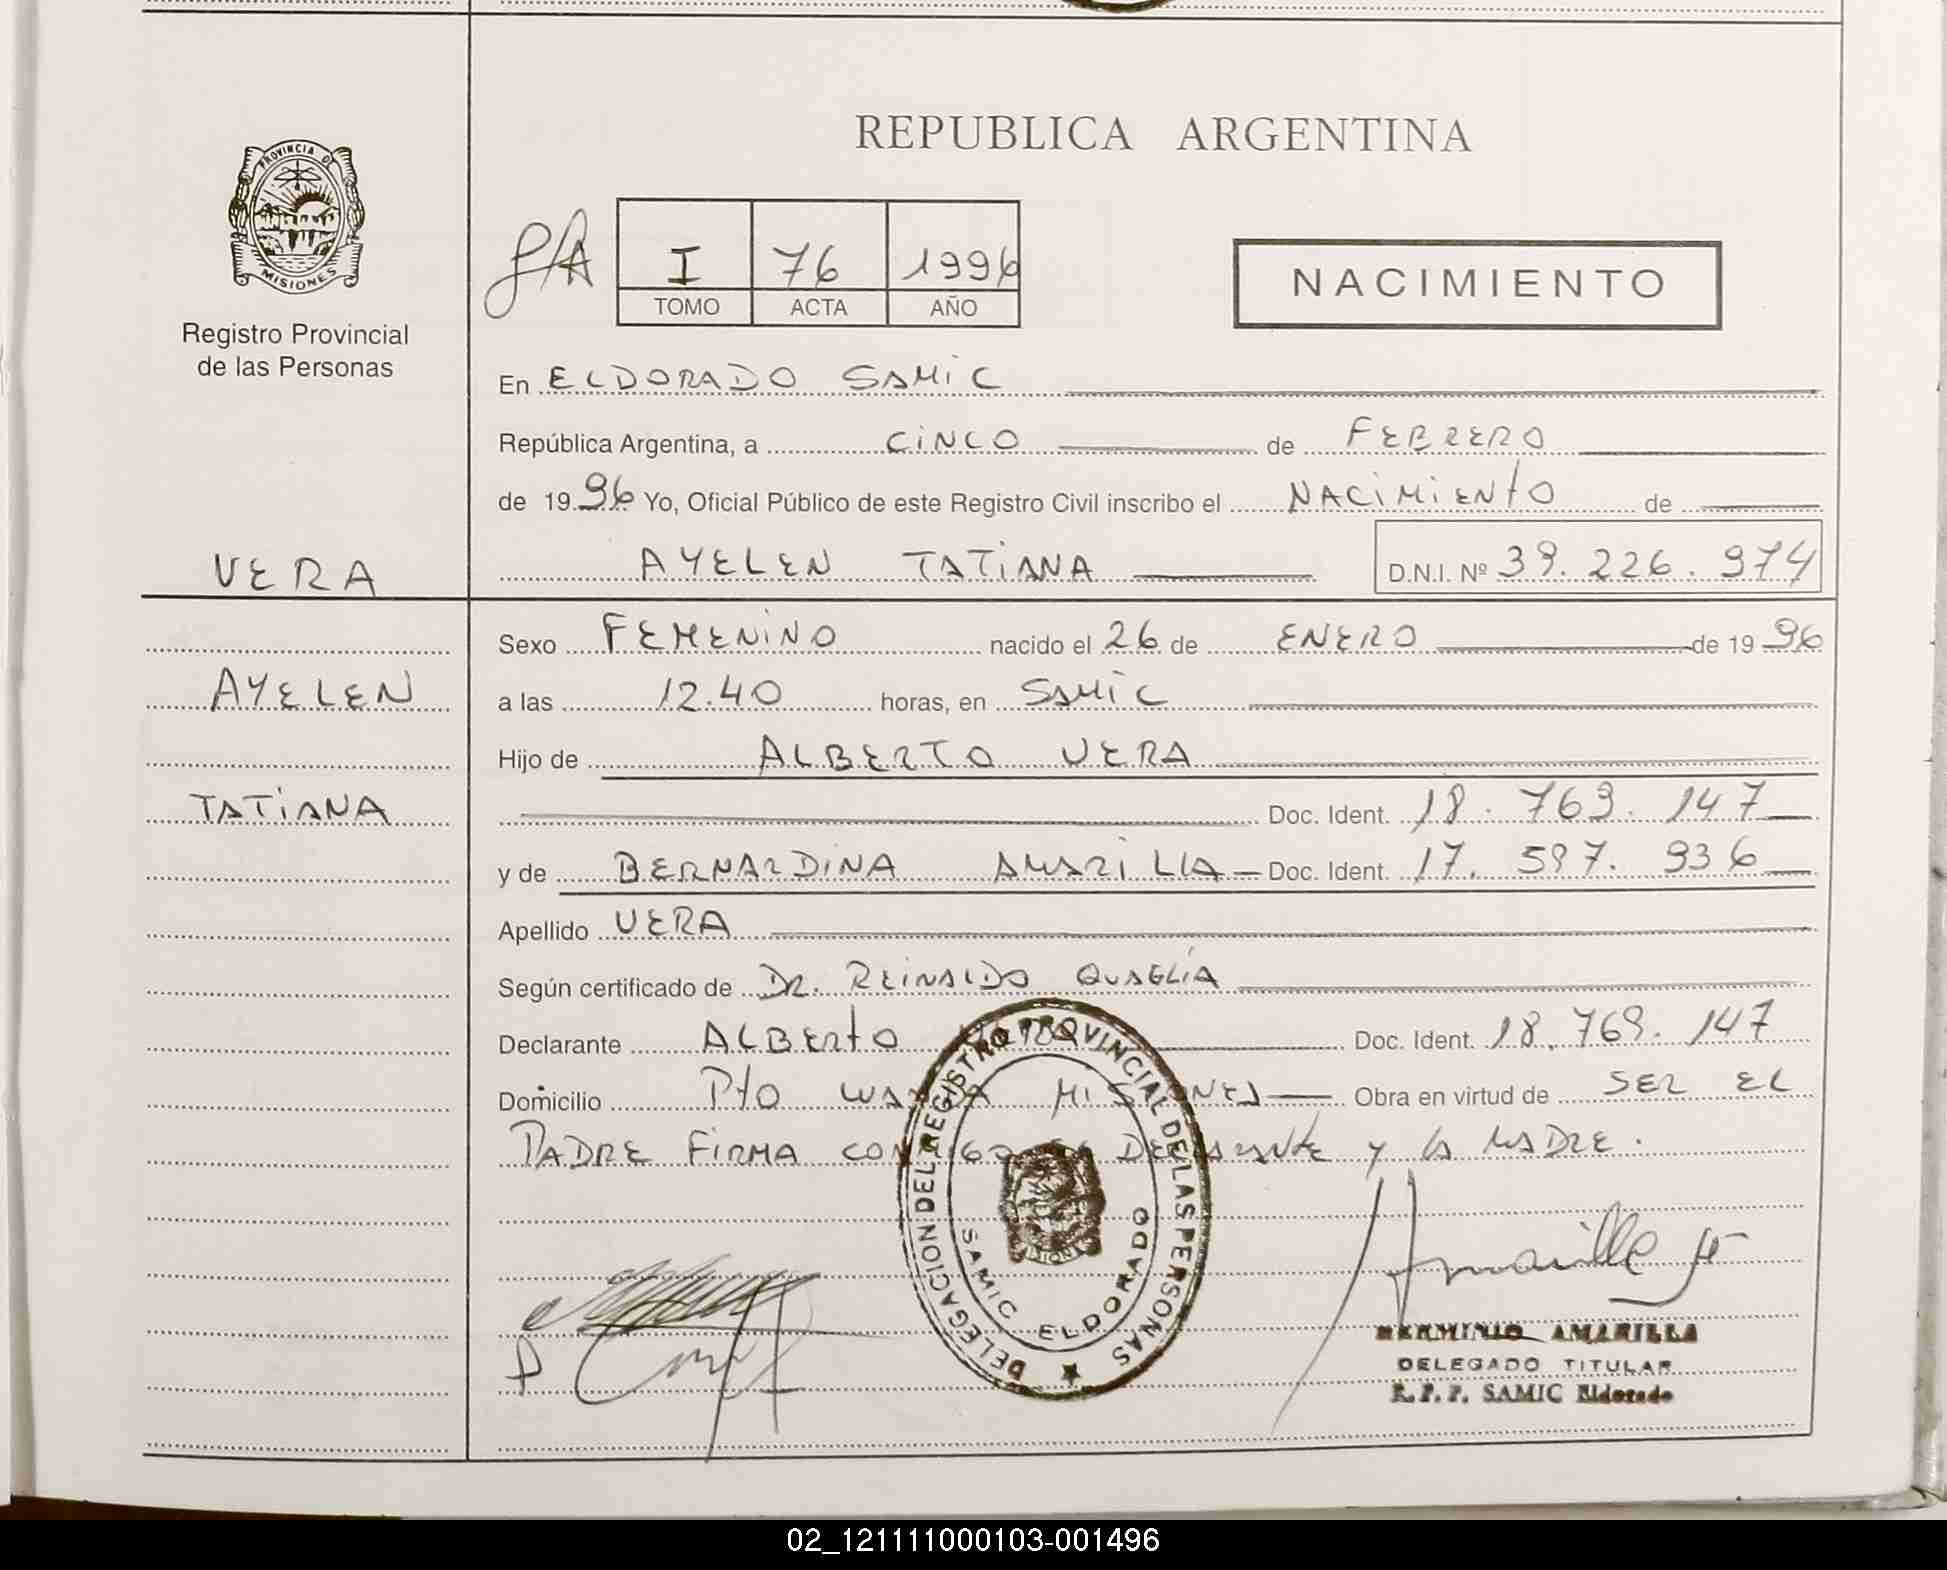 REPUBLICA ARGENTINA
PROVINCIA DE
MISIONES
Registro Provincial
de las Personas
I 76 1996
TOMO ACTA AÑO
NACIMIENTO
En ELDORADO SAMIC
República Argentina, a CINCO de FEBRERO
de 1996 Yo, Oficial Público de este Registro Civil inscribo el NACIMIENTO de
VERA
AYELEN TATIANA D.N.I. Nº 39.226.974
Sexo FEMENINO nacido el 26 de ENERO de 1996
AYELEN
a las 12.40 horas, en SAMIC
Hijo de ALBERTO VERA
TATIANA
Doc. Ident. 18.769.147
y de BERNARDINA AMARILLA Doc. Ident. 17.597.936
Apellido VERA
Según certificado de DR. REINALDO QUAGLIA
Declarante ALBERTO VERA Doc. Ident. 18.769.147
Domicilio Pto WANDA MISIONES Obra en virtud de SER EL
PADRE FIRMA CONMIGO EL DECLARANTE y LA MADRE.
DELEGACION DEL REGISTRO PROVINCIAL DE LAS PERSONAS
SAMIC ELDORADO
HERMINIO AMARILLA
DELEGADO TITULAR
R.P.P. SAMIC Eldorado
02_121111000103-001496